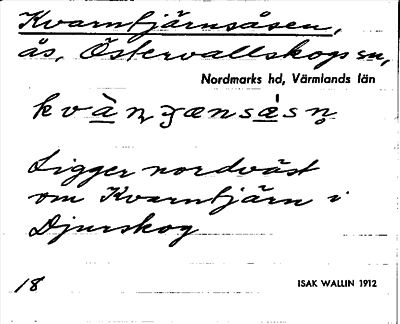 Kvarntjärnsåsen,
ås, Östervallskogs sn,
Nordmarks hd, Värmlands län
Ligger nordväst
om Kvarntjärn i
Djurskog
18
ISAK WALLIN 1912